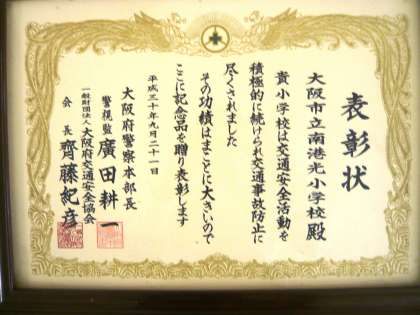 表彰状
大阪市立南港光小学校殿
貴小学校は交通安全活動を
積極的に続けられ交通事故防止に
尽くされました
その功績はまことに大きいので
ここに記念品を贈り表彰します
平成三十年九月二十一日
大阪府警察本部長
警視監 廣田耕一
一般財団法人 大阪府交通安全協会
会長 齊藤紀彦